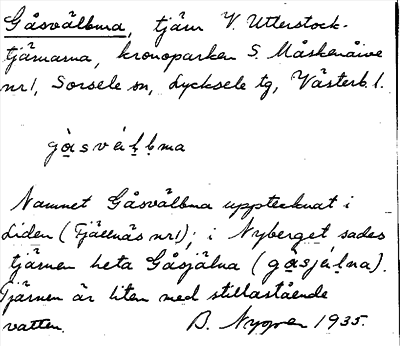 Gåsvälbma, tjärn V. Utterstock-
tjärnarna, kronoparken S. Måskenåive
nr 1, Sorsele sn, Lycksele tg, Västerb. l.
gạ̀svál̥ḅma
Namnet Gåsvälbma upptecknat i
Liden (Fjällnäs nr 1); i Nyberget sades
tjärnen heta Gåsjälna (gạ̀sjál̥na).
Tjärnen är liten med stillastående
vatten. B. Nygren 1935.